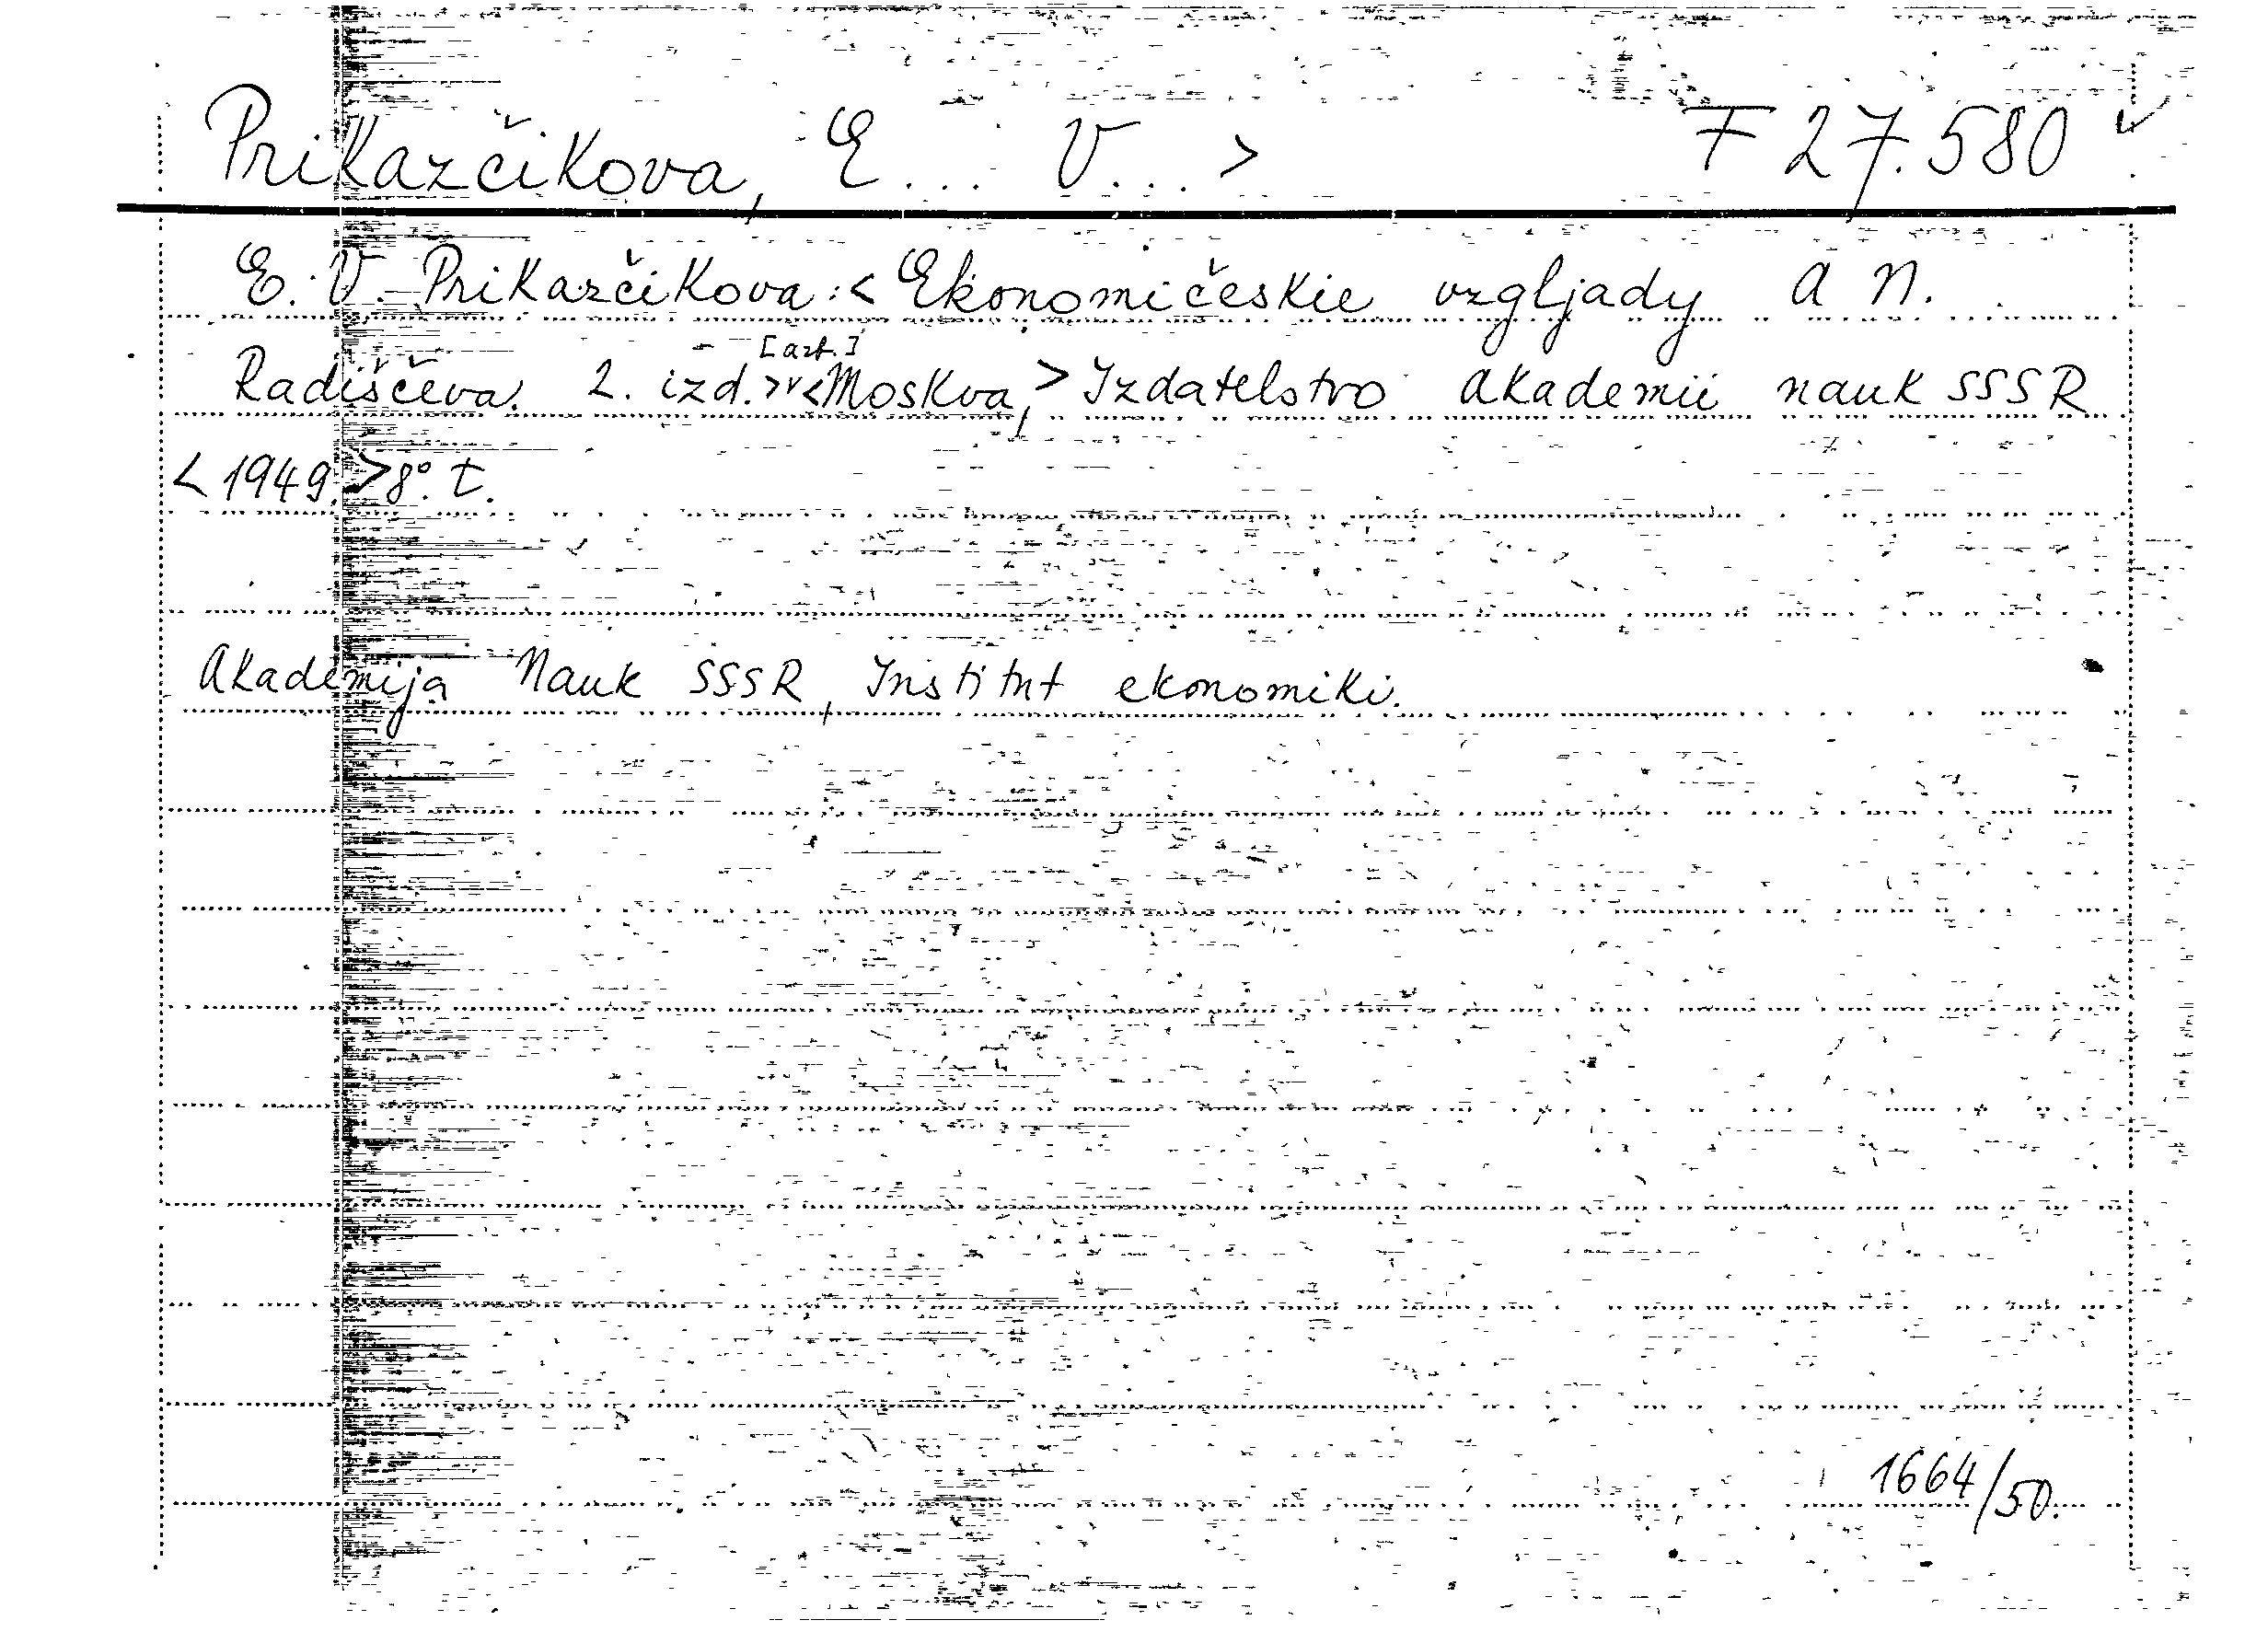 Prikazčikova, E... V... > F 27.580 v
E. V. Prikazčikova: < Ekonomičeskie vzgljady A N.
Radiščeva. 2. izd. > v < Moskva, > Izdatelstvo Akademii nauk SSSR
< 1949. > 8°. t.
Akademija Nauk SSSR, Institut ekonomiki.
1664/50.